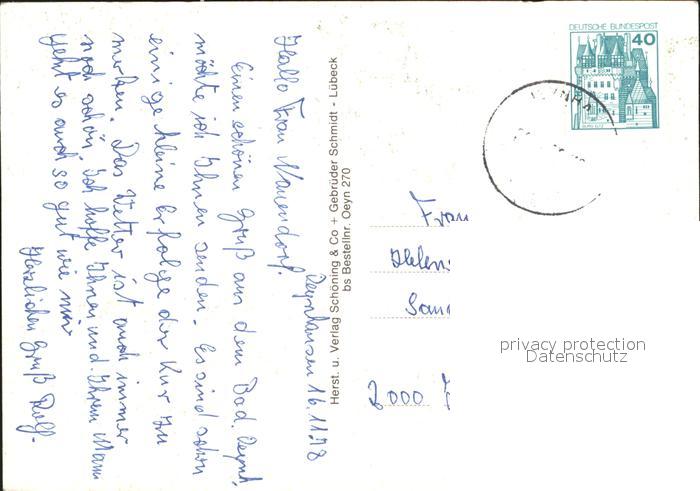 Oeynhausen 16.11.78
Hallo Frau Nauendorf.
Einen schönen Gruß aus dem Bad. Oeynh.
möchte ich Ihnen senden. Es sind schon
einige kleine Erfolge der Kur zu
merken. Das Wetter ist auch immer
noch schön. Ich hoffe Ihnen und Ihrem Mann
geht es auch so gut wie mir
Herzlichen Gruß Rolf.
Herst. u. Verlag Schöning & Co + Gebrüder Schmidt - Lübeck
bs Bestellnr. Oeyn 270
DEUTSCHE BUNDESPOST
40
BURG ELTZ
Frau
2000
privacy protection
Datenschutz